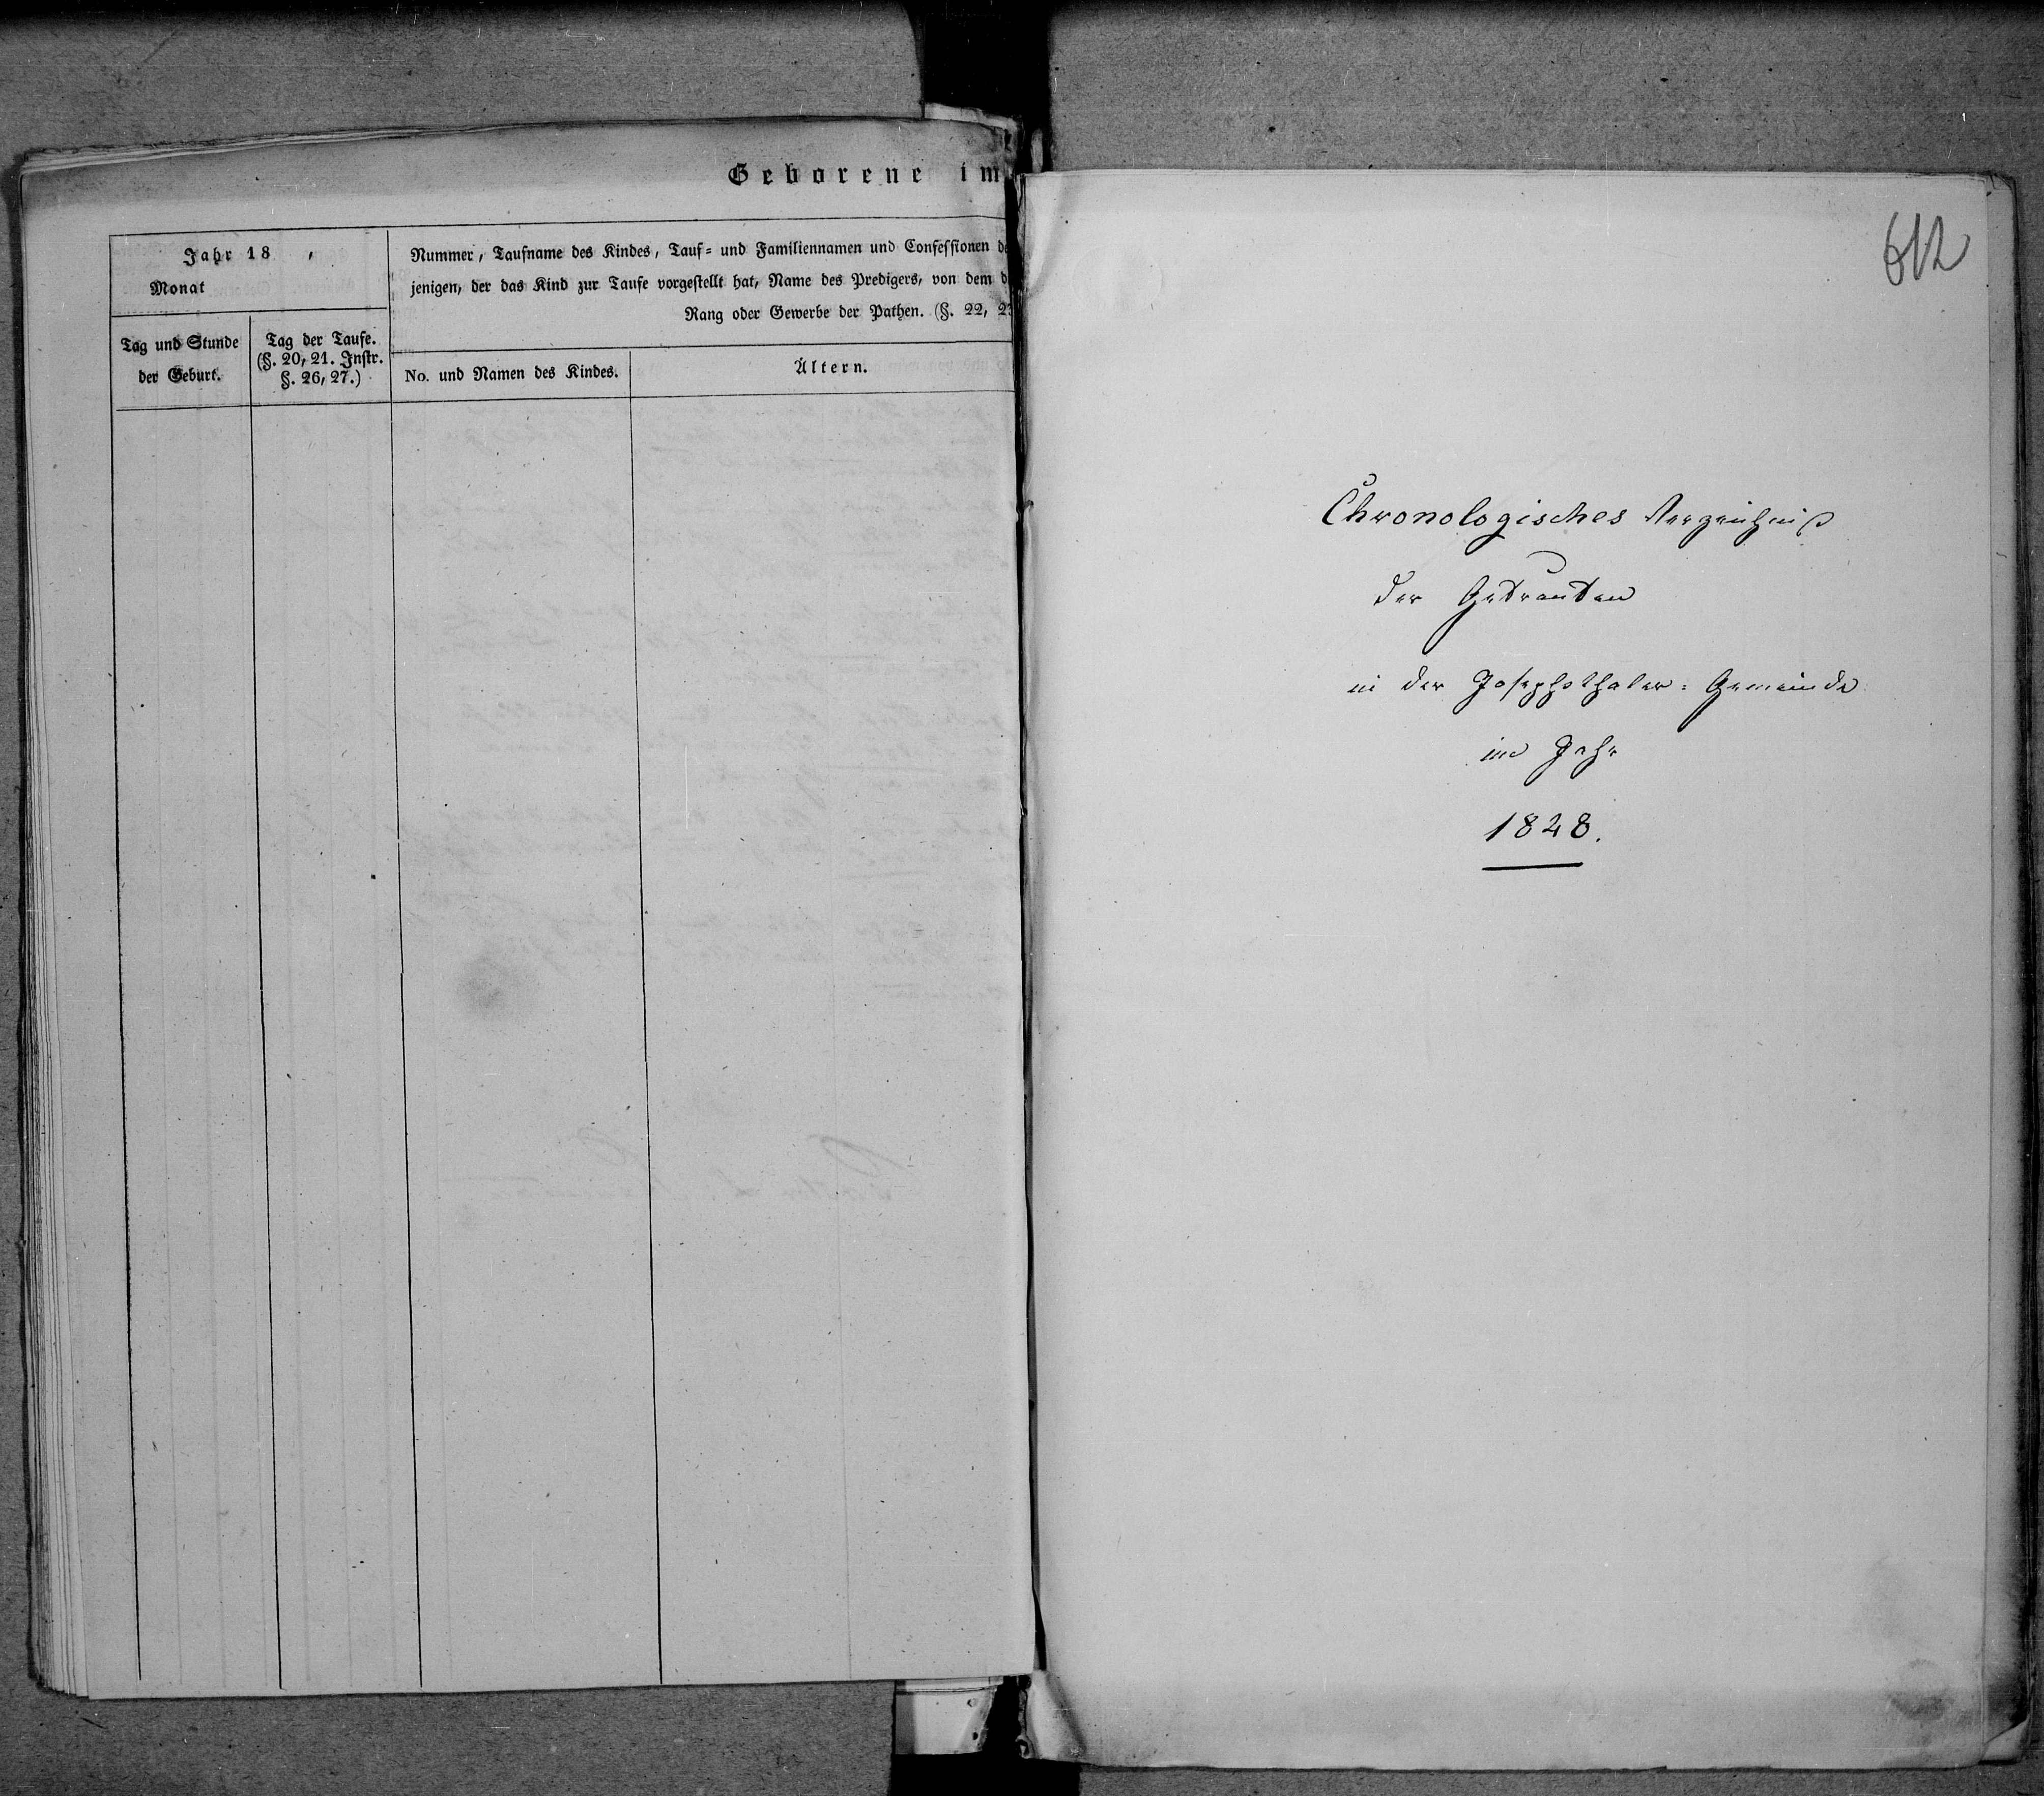 Geborene im
Jahr 18 ,
Monat
Nummer, Taufname des Kindes, Tauf- und Familiennamen und Confessionen de
jenigen, der das Kind zur Taufe vorgestellt hat, Name des Predigers, von dem d
Rang oder Gewerbe der Pathen. (§. 22, 23
Tag und Stunde
der Geburt.
Tag der Taufe.
(§. 20, 21. Instr.
§. 26, 27.)
No. und Namen des Kindes.
Ältern.
612
Chronologisches Verzeichniß
der Getrauten
in der Josephsthaler-Gemeinde
im Jahr
1828.